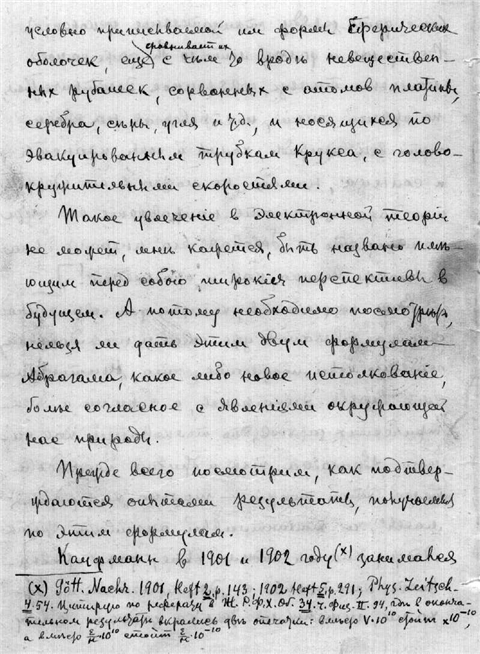 условно приписываемой им формѣ сферическихъ
оболочек, еще сравнивает их с чѣм то вродѣ невеществен-
ных рубашек, сорванных с атомов платины,
серебра, сѣры, угля и т.д., и носящихся по
эвакуированным трубкам Крукса, с голово-
кружительными скоростями.
Такое увлеченіе в электронной теоріи
не может, мнѣ кажется, быть названо имѣ-
ющим перед собою широкія перспективы в
будущем. А потому необходимо посмотрѣть,
нельзя ли дать этим двум формулам
Абрагама, какое либо новое истолкованіе,
болѣе согласное с явленіями окружающей
нас природы.
Прежде всего посмотрим, как подтвер-
ждаются опытами результаты, получаемые
по этим формулам.
Кауфманн в 1901 и 1902 году (x) занимался
(x) Gött. Nachr. 1901, Heft 2, p. 143; 1902 Heft 5, p. 291; Phys. Zeitsch.
4. 54. Цитирую по реферату в Ж. Р. Ф. Х. Об. 34. ч. Физ. II. 94, гдѣ в оконча-
тельном результатѣ вкрались двѣ опечатки: вмѣсто V·10¹⁰ стоит x10⁻¹⁰,
а вмѣсто ·10¹⁰ стоит ·10⁻¹⁰